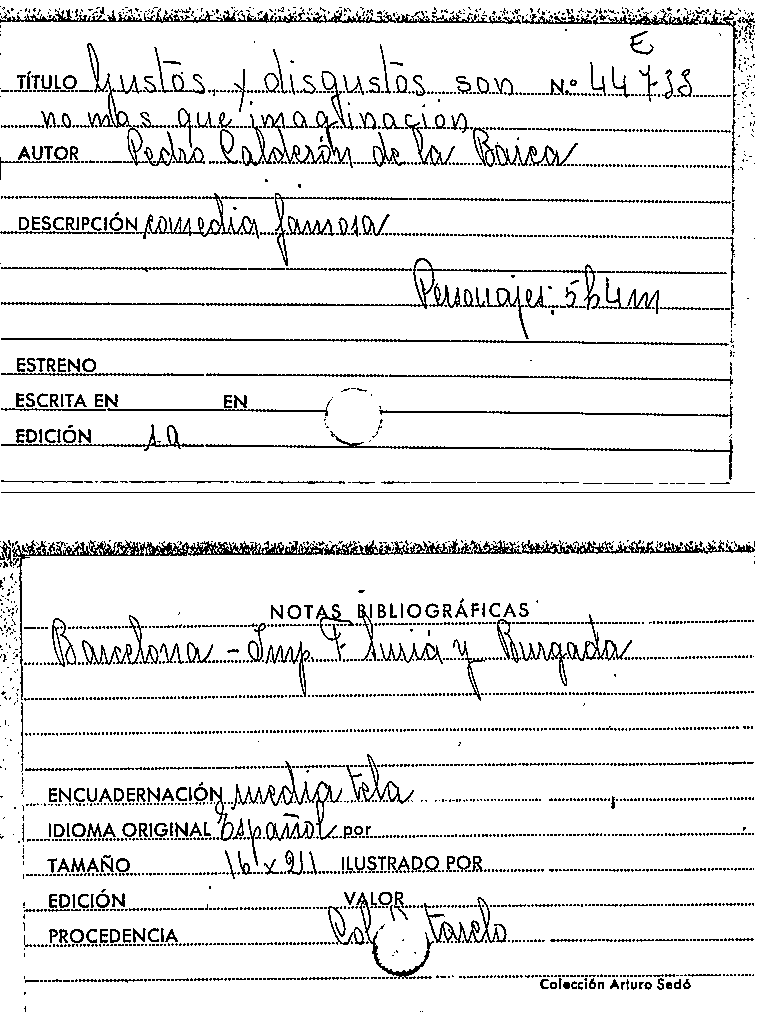 E
TÍTULO Gustos, y disgustos son N.º 44733
no mas que imaginación
AUTOR Pedro Calderón de la Barca
DESCRIPCIÓN comedia famosa
Personajes: 5h4m
ESTRENO
ESCRITA EN EN
EDICIÓN s.a
NOTAS BIBLIOGRÁFICAS
Barcelona - Imp. F Suriá y Burgada
ENCUADERNACIÓN media tela
IDIOMA ORIGINAL Español por
TAMAÑO 16 x 211 ILUSTRADO POR
EDICIÓN VALOR
PROCEDENCIA Col tarelo
Colección Arturo Sedó